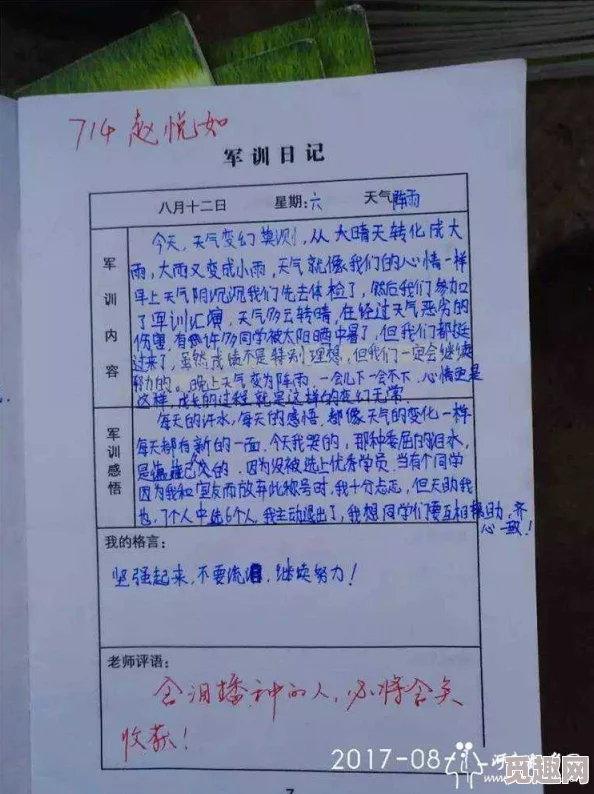 714 赵悦如
军训日记
八月十二日 星期:六 天气 阵雨
军训内容
今天,天气变幻莫测,从大晴天转化成大
雨,大雨又变成小雨,天气就像我们的心情一样
早上天气阴沉沉我们先去体检了,然后我们参加
了军训汇演,天气多云转晴,在经过天气恶劣的
伤害,有许多同学被太阳晒中暑了,但我们都挺
过来了,虽然成绩不是特别理想,但我们一定会继续
努力的。晚上天气变为阵雨,一会儿下一会不下,心情更是
这样,成长的过程就是这样的变幻无常.
军训感悟
每天的汗水,每天的感悟,都像天气的变化一样
每天都有新的一面.今天我哭的,那种委屈的泪水,
是自己的.因为没被选上优秀学员,当有个同学
因为我和室友而放弃此称号时,我十分,但天助我
也,7个人中选6个人,我主动退出了,我想同学们要互相帮助,齐
心一致!
我的格言:
坚强起来,不要流泪,继续努力!
老师评语:
含泪播种的人,必将含笑
收获!
2017-08
觅趣网
www.
7